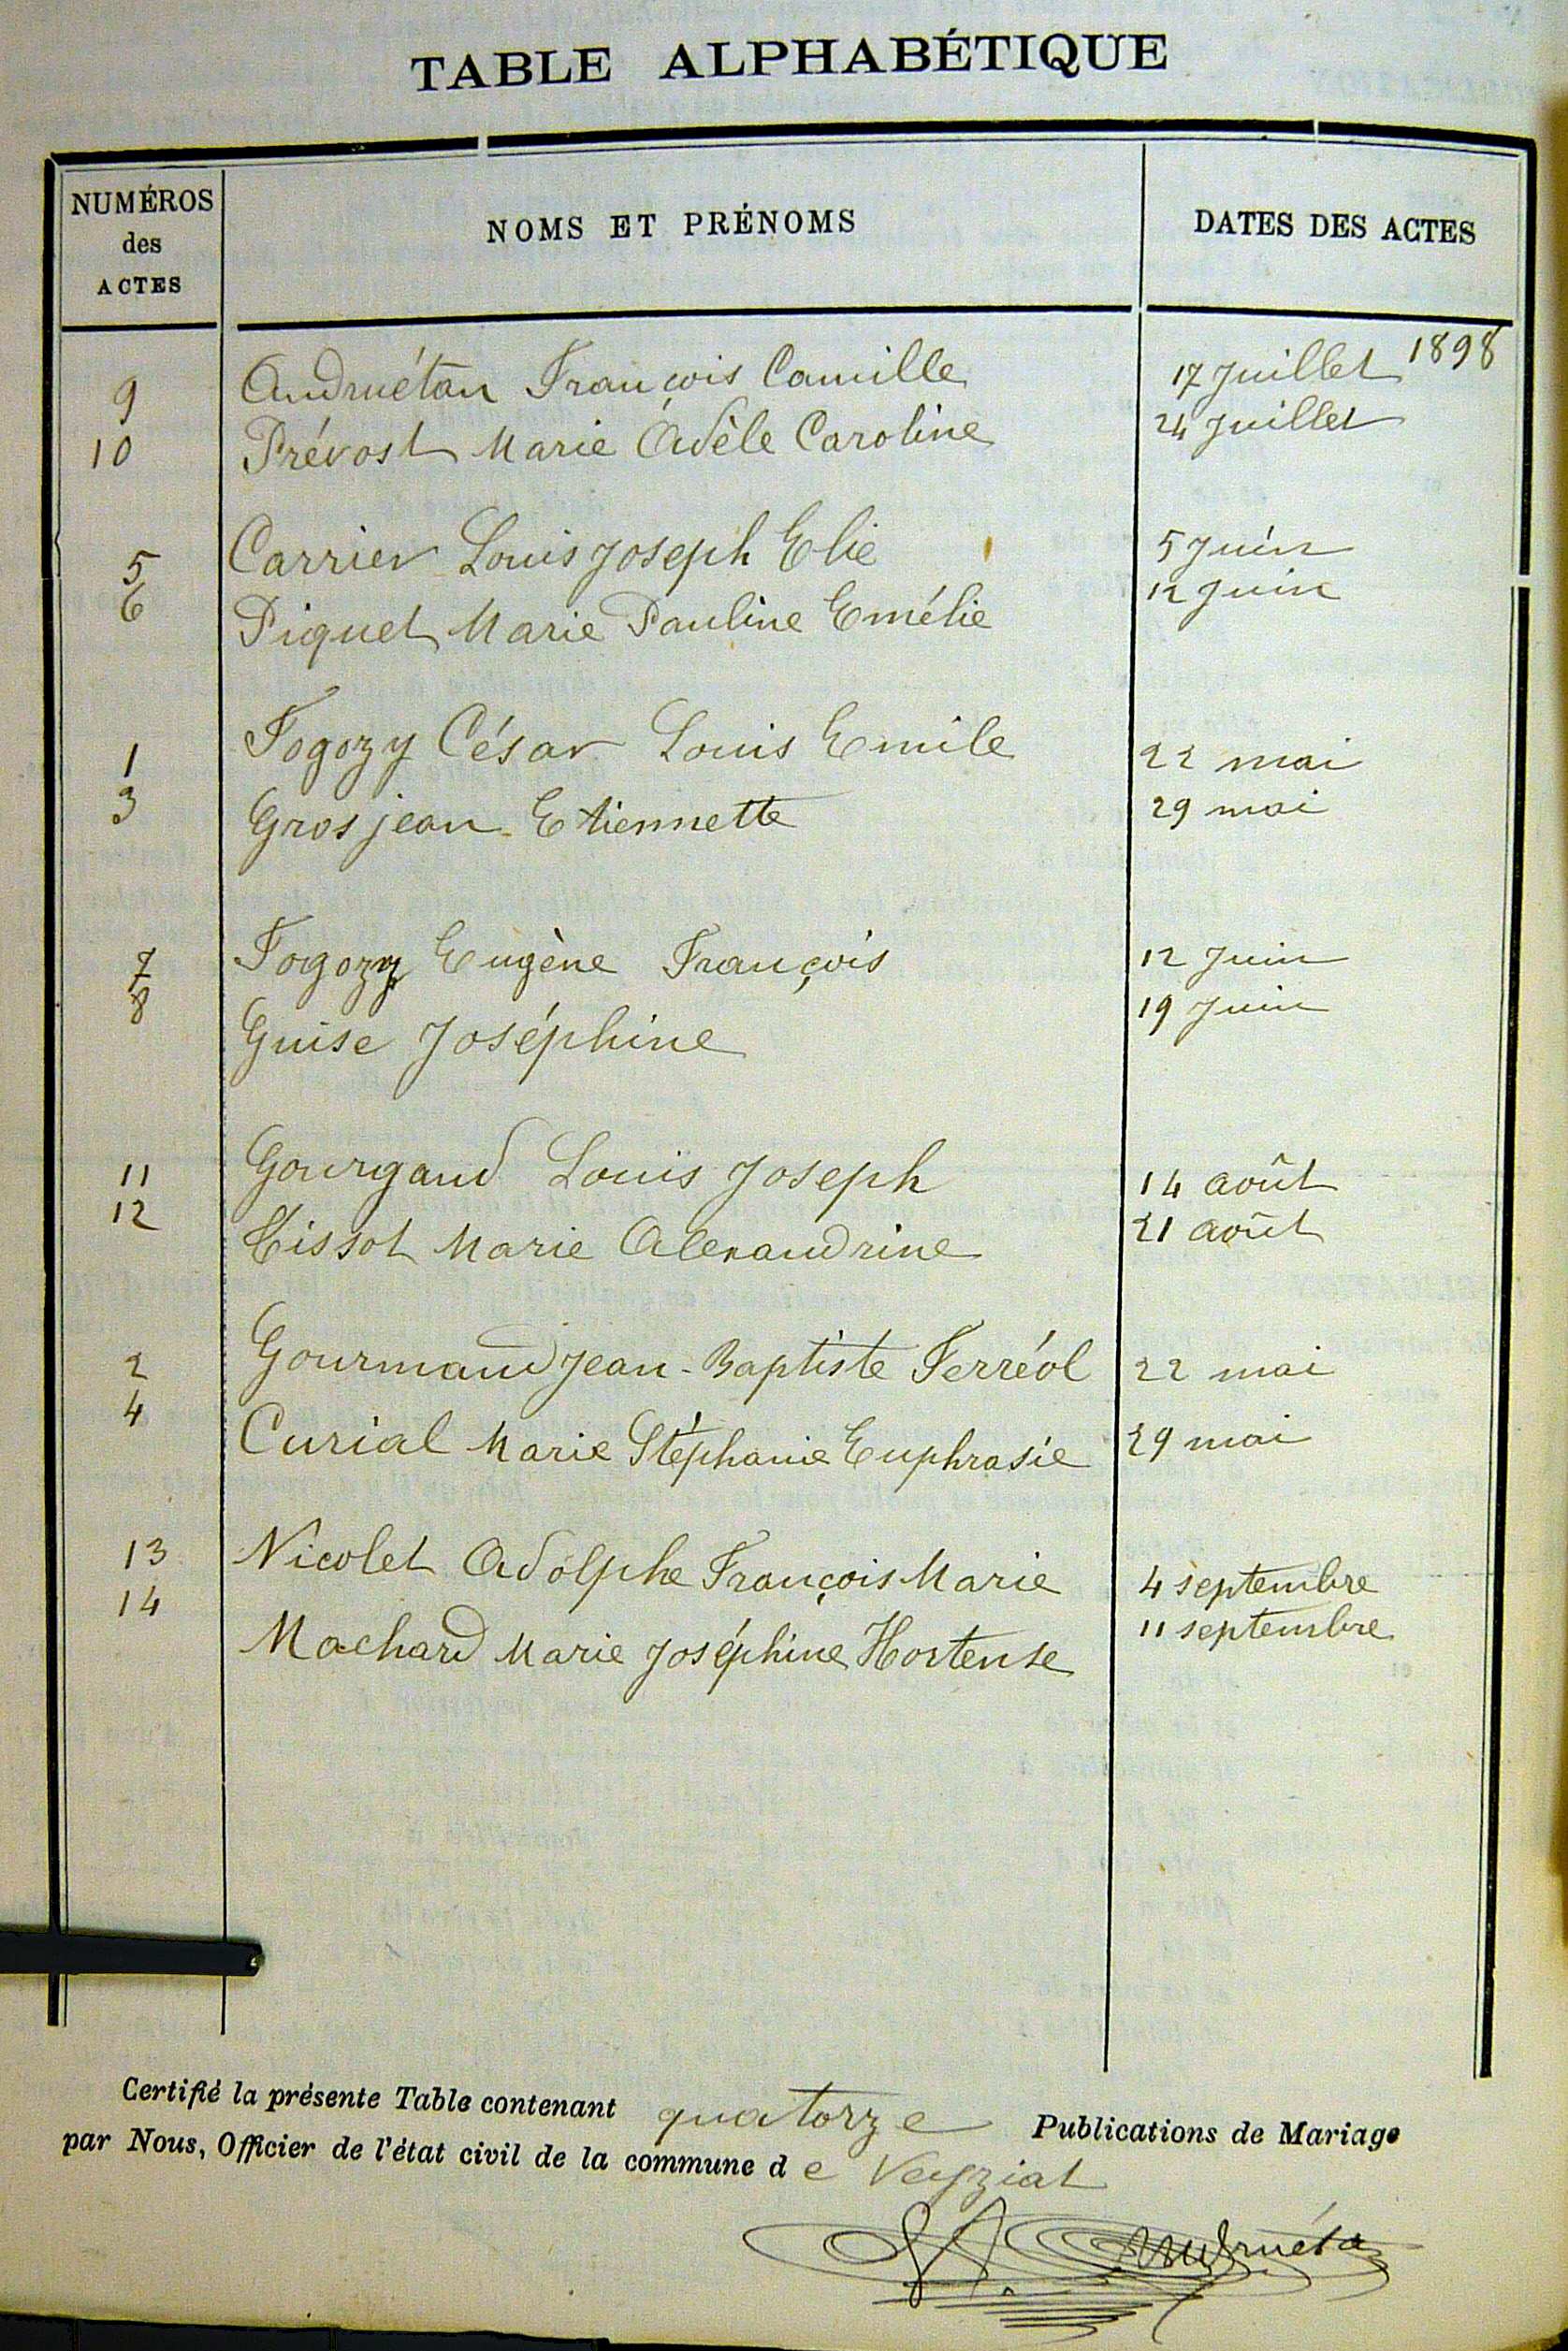 TABLE ALPHABÉTIQUE
NUMÉROS des ACTES | NOMS ET PRÉNOMS | DATES DES ACTES
9 Andruétan François Camille 17 Juillet 1898
10 Prévost Marie Adèle Caroline 24 Juillet
5 Carrier Louis Joseph Elie 5 Juin
6 Piquet Marie Pauline Emélie 12 Juin
1 Fogozy César Louis Emile 22 mai
3 Grosjean Etiennette 29 mai
7 Fogozy Eugène François 12 Juin
8 Guise Joséphine 19 Juin
11 Gourgaud Louis Joseph 14 août
12 Tissot Marie Alexandrine 21 août
2 Gourmand Jean-Baptiste Ferréol 22 mai
4 Curial Marie Stéphanie Euphrasie 29 mai
13 Nicolet Adolphe François Marie 4 septembre
14 Machard Marie Joséphine Hortense 11 septembre
Certifié la présente Table contenant quatorze Publications de Mariage
par Nous, Officier de l'état civil de la commune de Veyziat